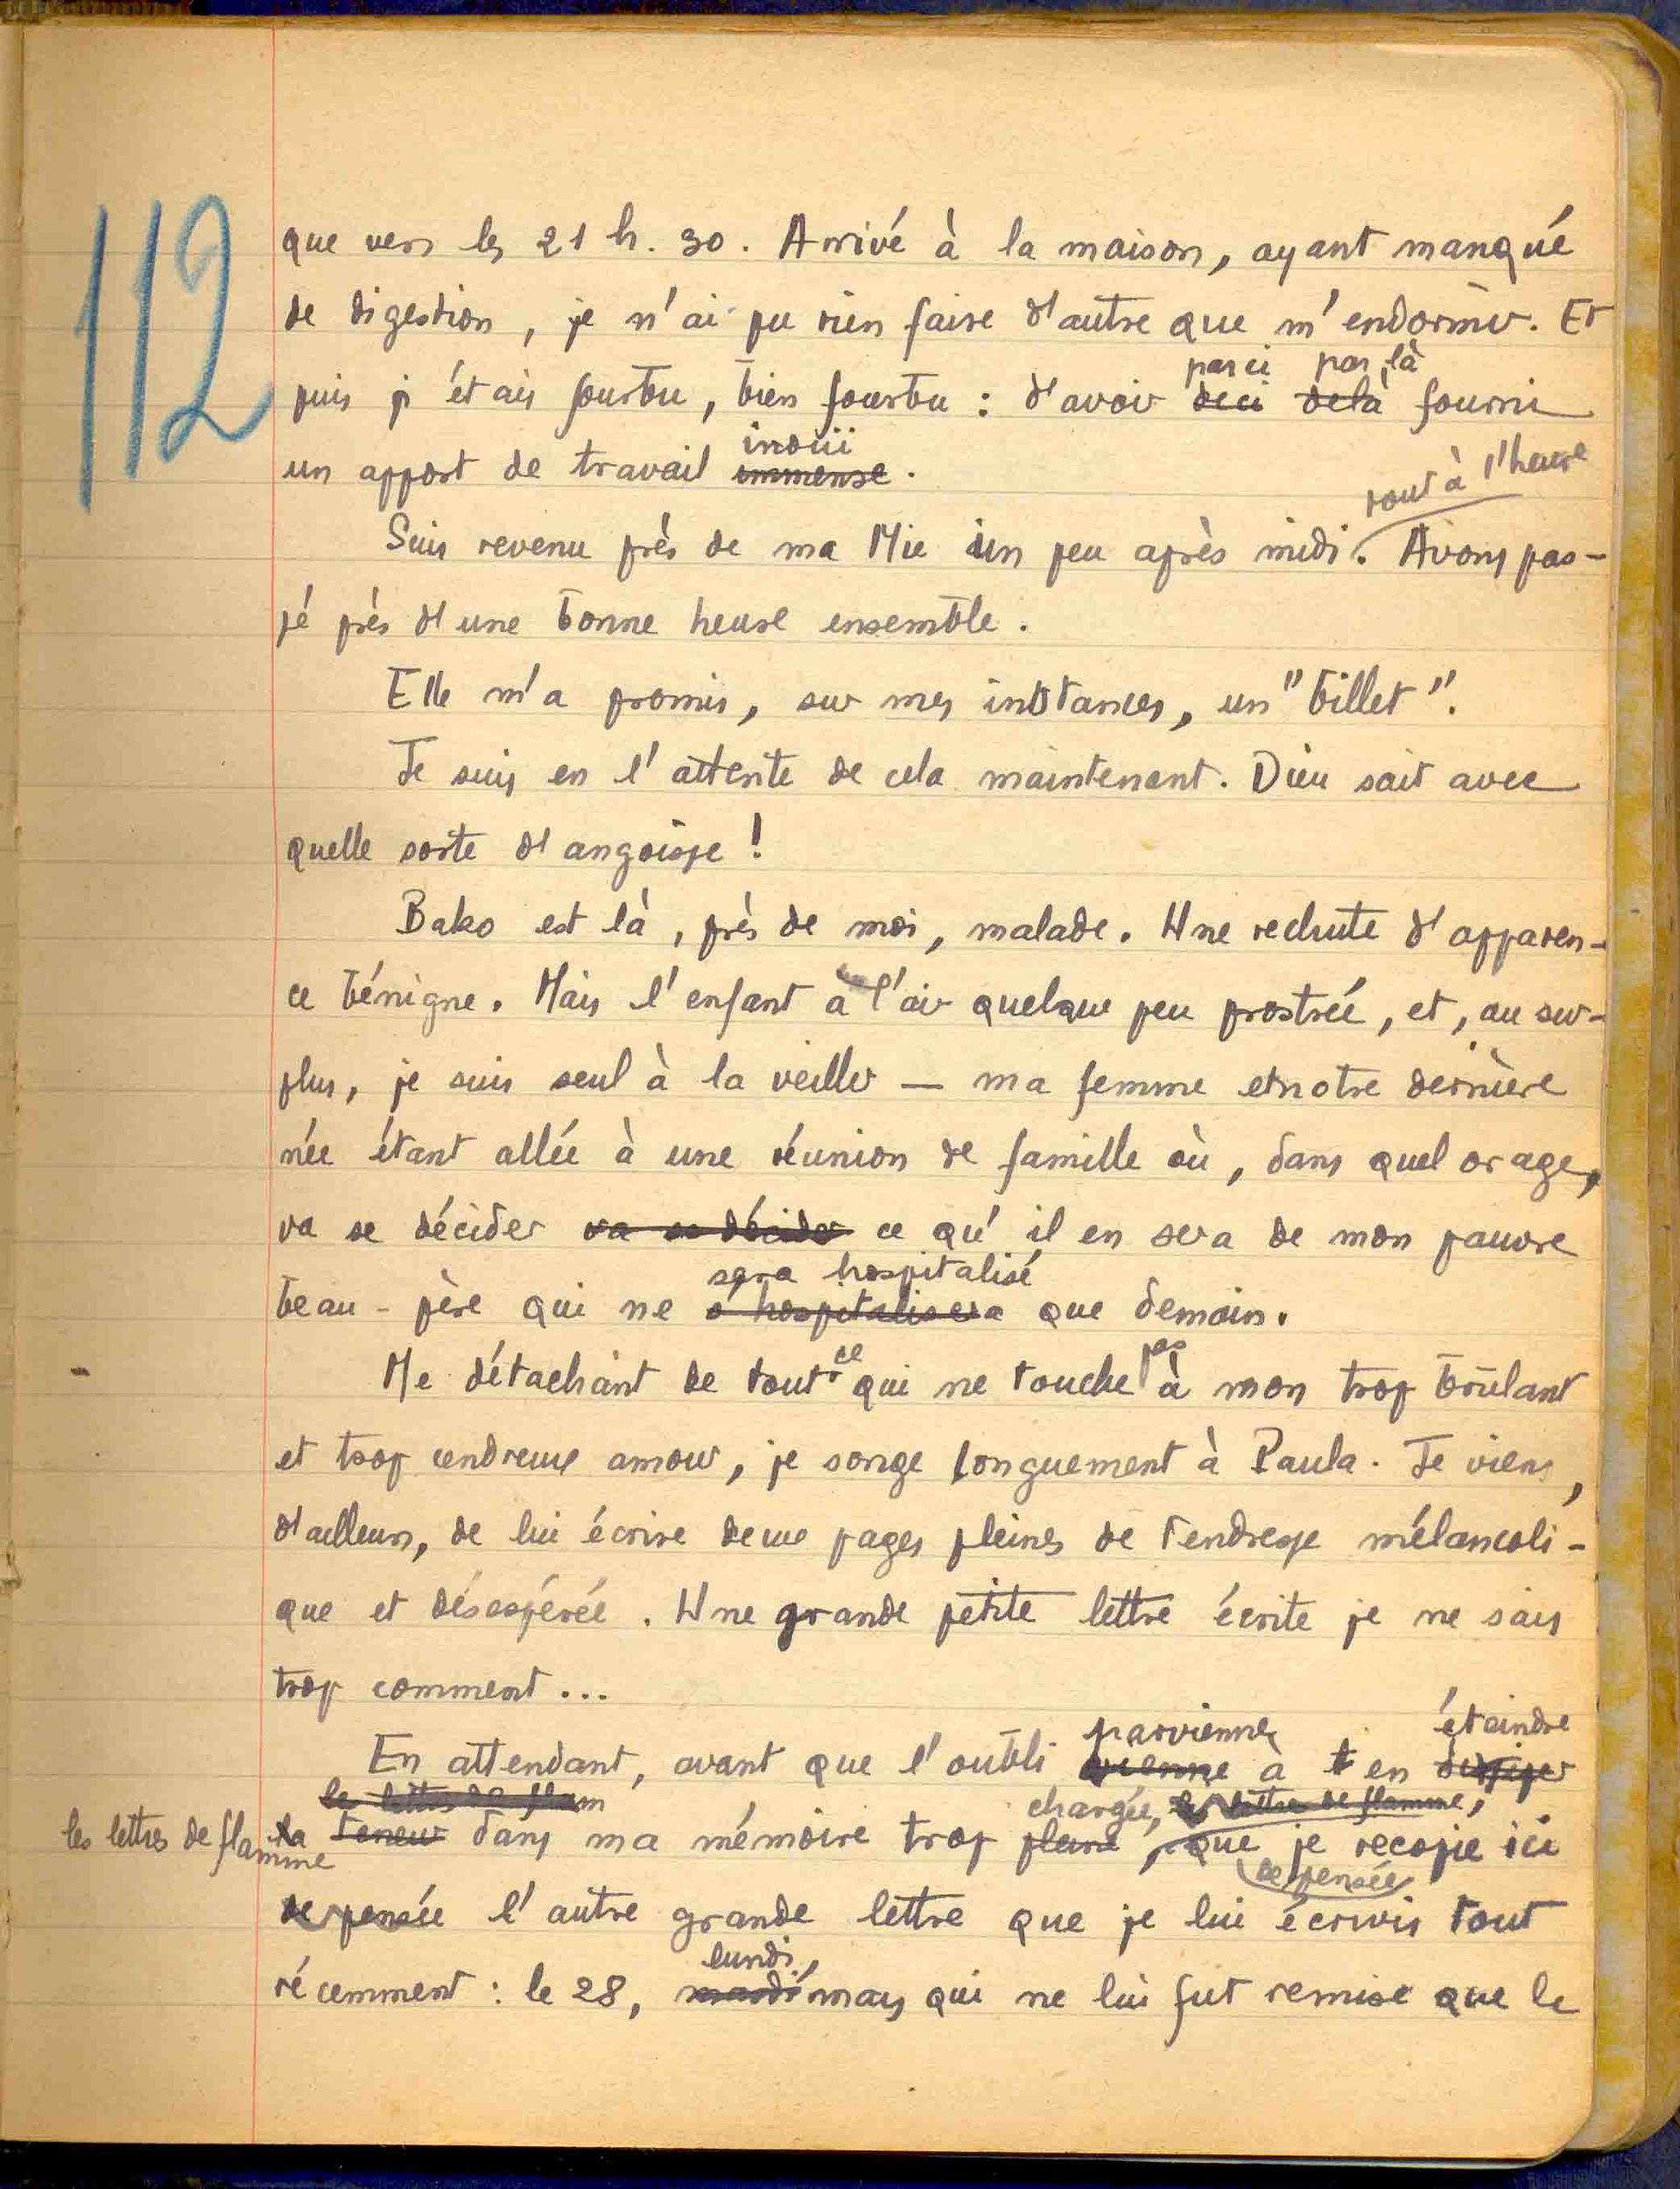 112
que vers les 21 h. 30. Arrivé à la maison, ayant manqué
de digestion, je n'ai pu rien faire d'autre que m'endormir. Et
par ci par là
puis j'étais fourbu, bien fourbu : d'avoir deci delà fourni
inouii
un apport de travail immense.
tout à l'heure
Suis revenu près de ma Mie un peu après midi. Avons pas-
sé près d'une bonne heure ensemble.
Elle m'a promis, sur mes instances, un "billet".
Je suis en l'attente de cela maintenant. Dieu sait avec
quelle sorte d'angoisse !
Bako est là, près de moi, malade. Une rechute d'apparen-
ce bénigne. Mais l'enfant a l'air quelque peu prostrée, et, au sur-
plus, je suis seul à la veiller — ma femme et notre dernière
née étant allée à une réunion de famille où, dans quel orage,
va se décider va se décider ce qu'il en sera de mon pauvre
sera hospitalisé
beau-père qui ne s'hospitalisera que demain.
ce pas
Me détachant de tout qui ne touche à mon trop brûlant
et trop cendreux amour, je songe longuement à Paula. Je viens,
d'ailleurs, de lui écrire deux pages pleines de tendresse mélancoli-
que et désespérée. Une grande petite lettre écrite je ne sais
trop comment...
parvienne éteindre
En attendant, avant que l'oubli vienne à en dissiper
les lettres de flam
chargée, les lettres de flamme,
les lettres de flamme
la teneur dans ma mémoire trop pleine, que je recopie ici
de pensée
de pensée l'autre grande lettre que je lui écrivis tout
lundi,
récemment : le 28, mardi mars qui ne lui fut remise que le